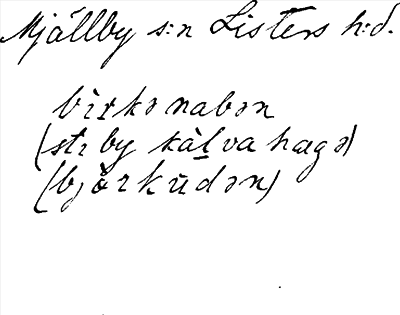 Mjällby s:n Listers h:d.
bìrkənabən
(stɿ by kàḻva hægə)
(bjö̀rkūdən)